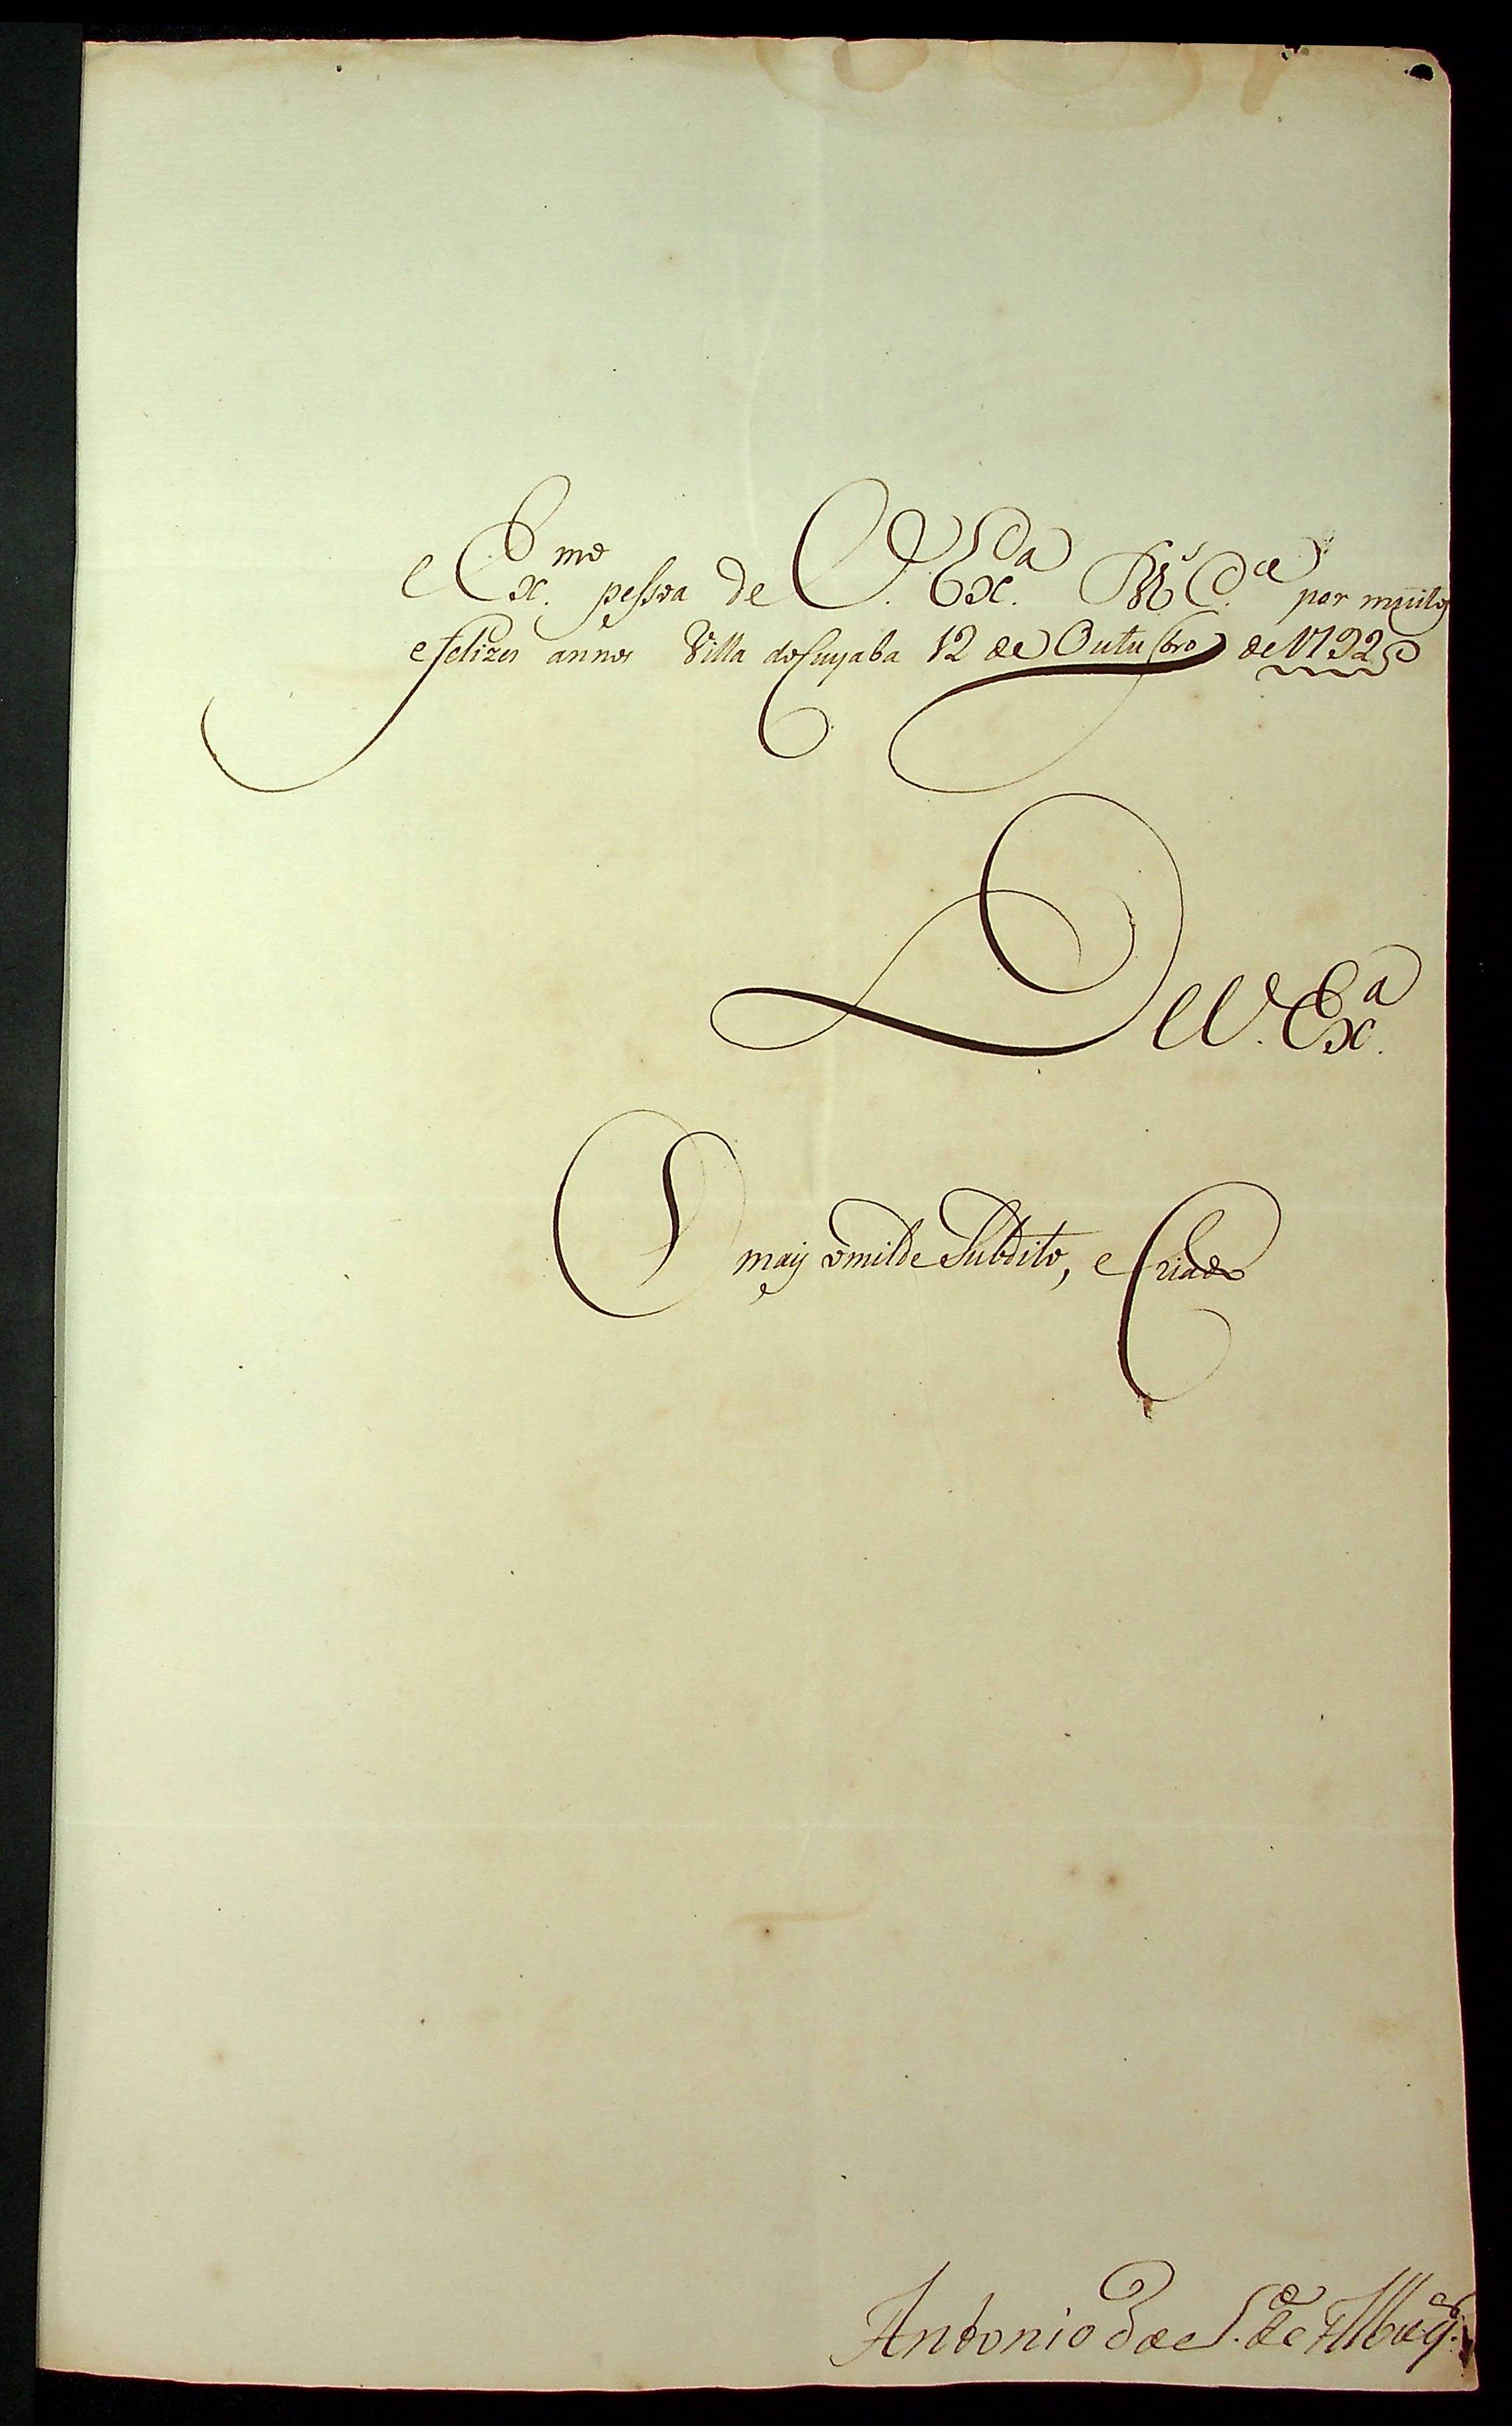 e Ex.mo pessoa de V. Ex.a por muitos
e felizes annos Villa do Cuyaba 12 de Outubro de 1792
De V. Ex.a
O mais omilde Subdito, e Criado
Antonio de